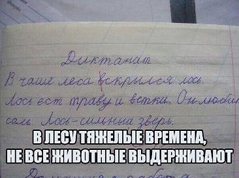 Диктант
В чаще леса вскрылся лось.
Лось ест траву и ветки. Он любит
соль. Лось-сильный зверь.
В ЛЕСУ ТЯЖЕЛЫЕ ВРЕМЕНА,
НЕ ВСЕ ЖИВОТНЫЕ ВЫДЕРЖИВАЮТ